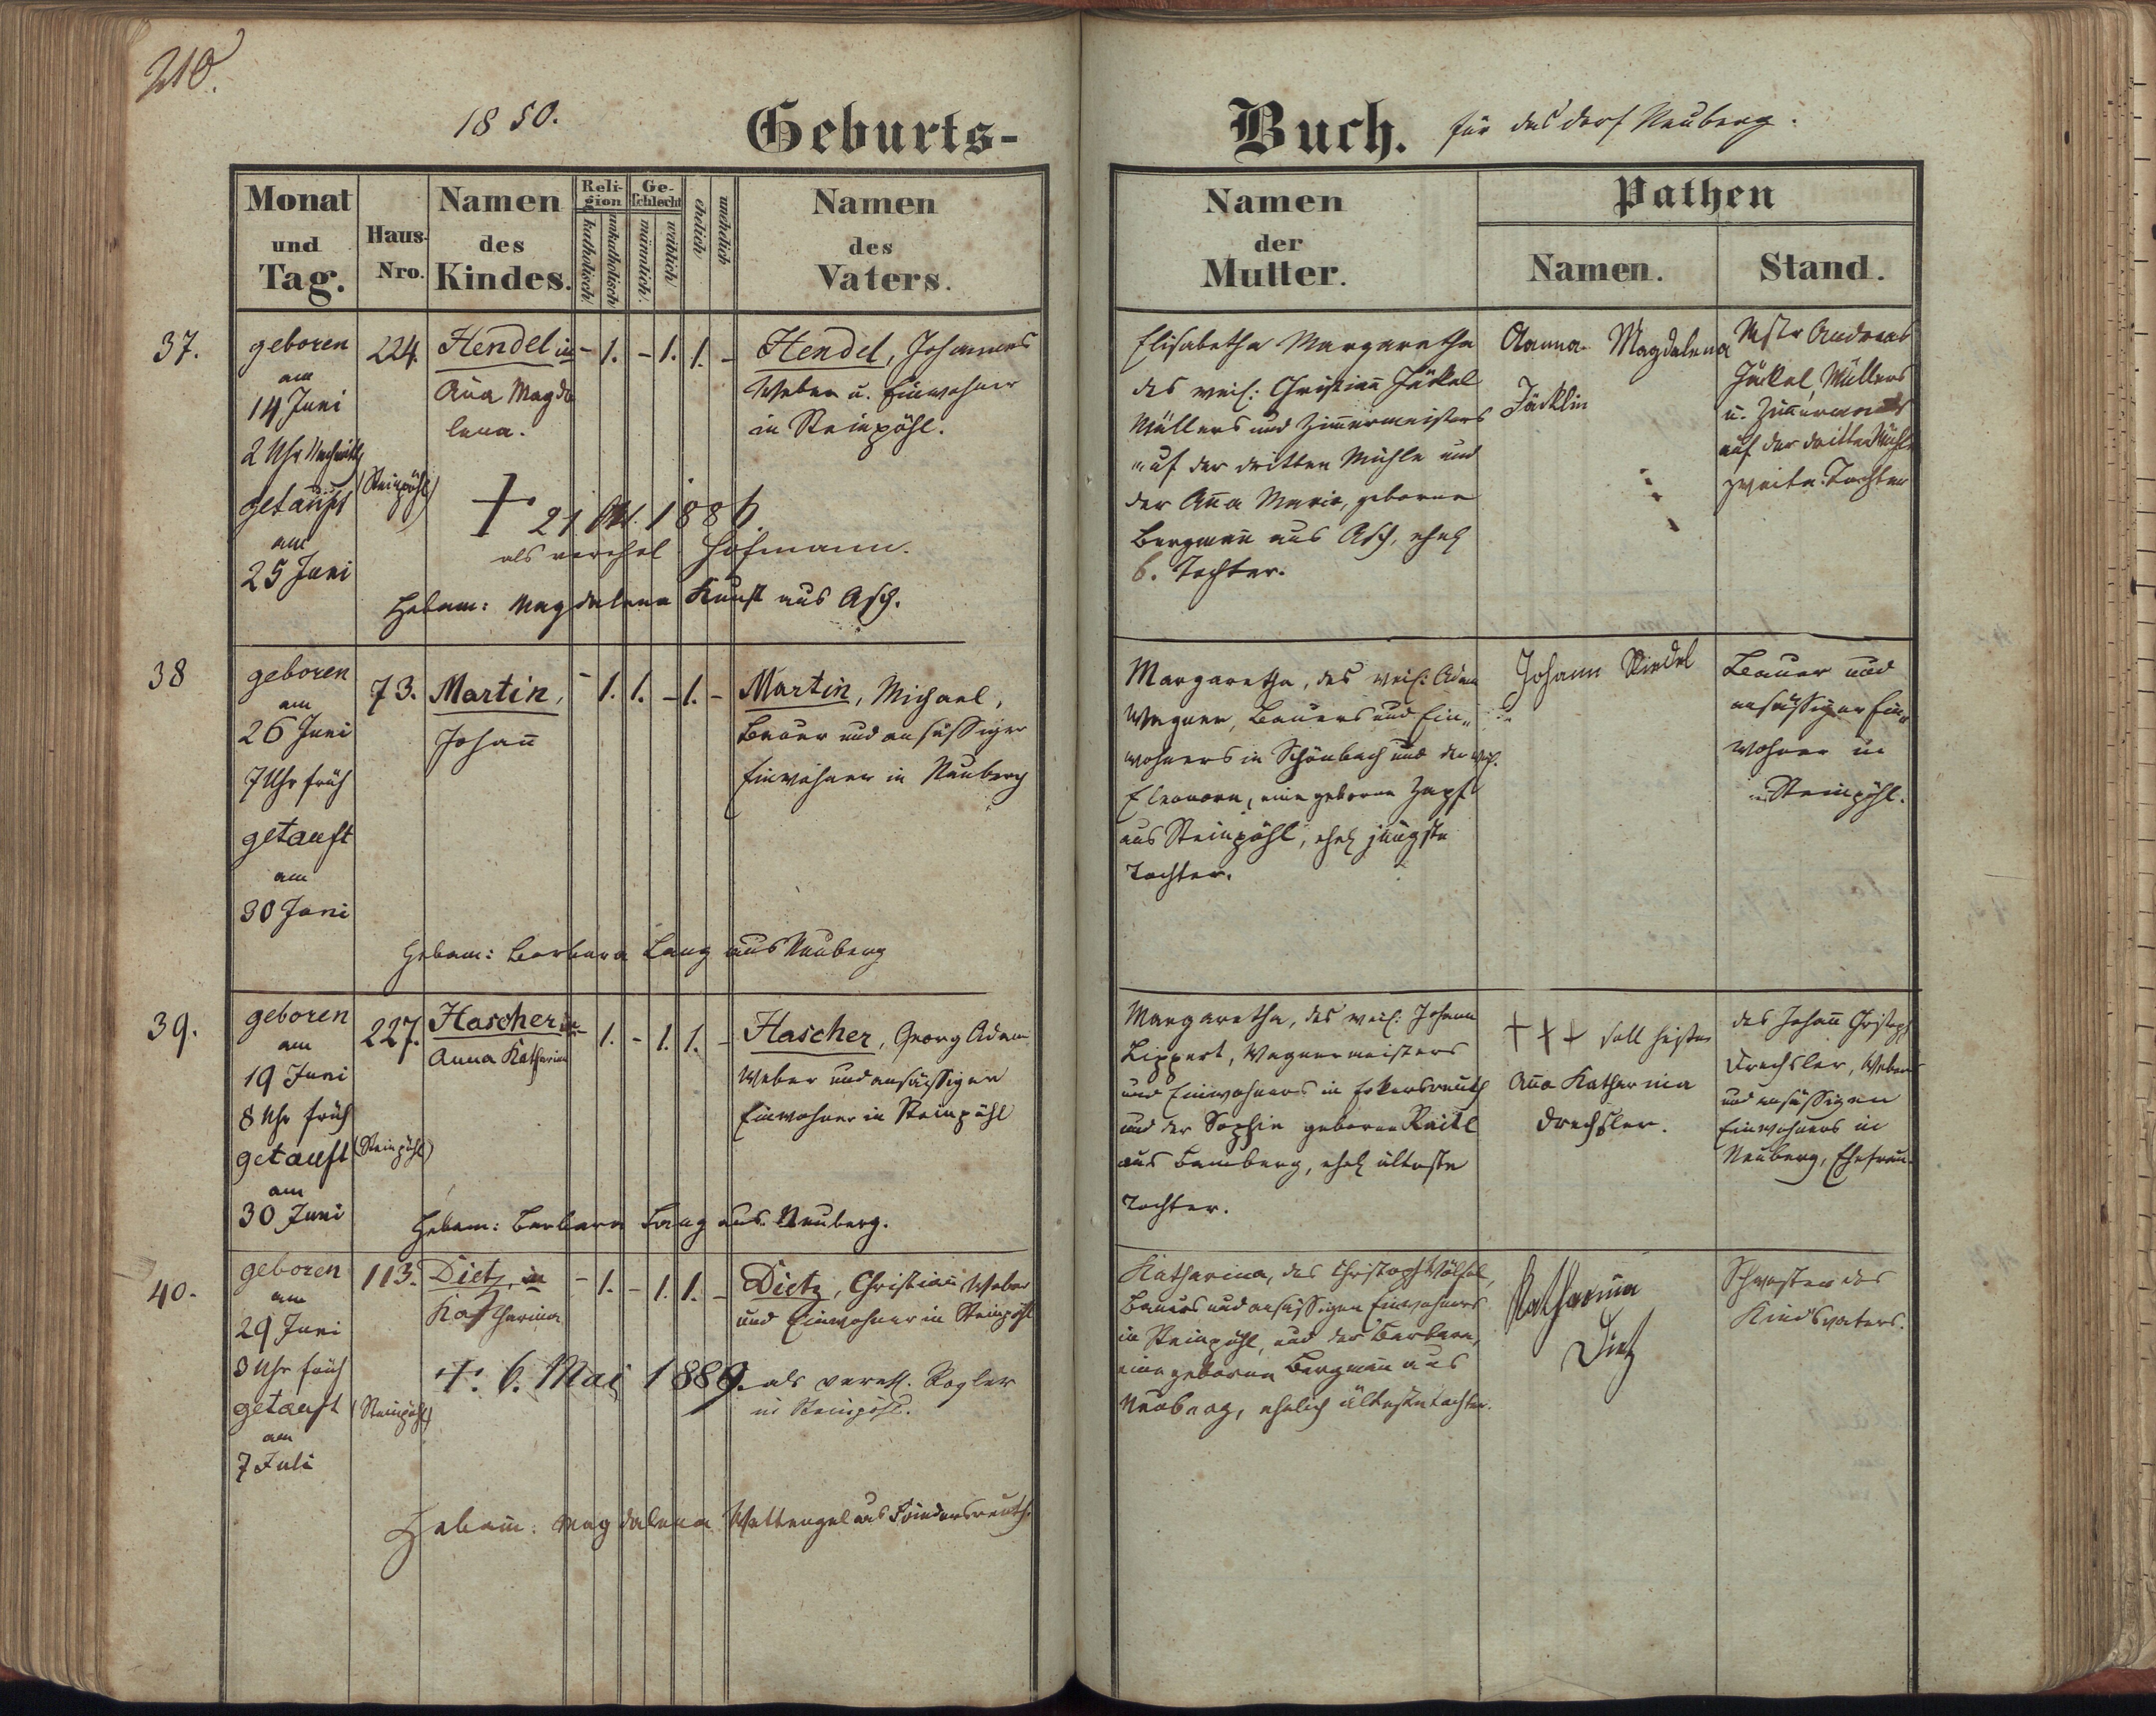 210.
1850.
Geburts-
Buch. für das Dorf Neuberg.
Monat
und
Tag.
Haus-
Nro.
Namen
des
Kindes.
Reli-
gion
katholisch
unkatholisch
Ge-
schlecht
männlich
weiblich
ehelich
unehelich
Namen
des
Vaters.
Namen
der
Mutter.
Pathen
Namen.
Stand.
37.
geboren
am
14 Juni
2 Uhr Nachmitg
getauft
am
25 Juni
224.
(Steinpöhl)
Hendel in
Aña Magda
lena.
- 1. - 1. 1. -
Hendel, Johannes
Weber u. Einwohner
in Steinpöhl.
+ 21 Okt. 1886.
als verehel Hofmann.
Hebam: Magdalena Kunst aus Asch.
Elisabetha Margaretha
des weil: Christian Jäckel
Müllers und Zimermeisters
auf der dritten Mühle und
der Aña Maria, geborne
Bergmañ aus Asch, ehel
6. Tochter.
Aanna Magdalena
Jäcklin
Mstr Andreas
Jäckel Müllers
u. Zimermanns
auf der dritten Mühle
zweite Tochter
38
geboren
am
26 Juni
7 Uhr früh
getauft
am
30 Juni
73.
Martin,
Johañ
- 1. 1. - 1. -
Martin, Michael,
Bauer und ansässiger
Einwohner in Neuberg
Hebam: Barbara Lang aus Neuberg
Margaretha, des weil: Adam
Wagner, Bauers und Ein-
wohners in Schönbach und der weil.
Eleonora, eine geborne Zapf
aus Steinpöhl, ehel jüngste
Tochter.
Johann Riedel
Bauer und
ansässiger Ein-
wohner in
Steinpöhl.
39.
geboren
am
19 Juni
8 Uhr früh
getauft
am
30 Juni
227.
(Steinpöhl)
Hascher in
Anna Katharina
- 1. - 1. 1. -
Hascher, Georg Adam
Weber und ansässiger
Einwohner in Steinpöhl
Hebam: Barbara Lang aus Neuberg.
Margaretha, des weil: Johann
Lippert, Wagnermeisters
und Einwohners in
und der Sophia geborne Raitl
aus Bamberg, ehel älteste
Tochter.
+++ soll heißen
Aña Katharina
Drechsler.
des Johañ Christoph
Drechsler, Webers
und ansässigen
Einwohners in
Neuberg, Ehefrau.
40.
geboren
am
29 Juni
3 Uhr früh
getauft
am
7 Juli
113.
(Steinpöhl)
Dietz, in
Katharina
- 1. - 1. 1. -
Dietz, Christian, Weber
und Einwohner in Steinpöhl
+. 6. Mai 1889. als verehl. Rogler
in Steinpöhl.
Hebam: Magdalena Wettengel aus Friedersreuth.
Katharina, des Christoph Wölfel,
Bauers und ansässigen Einwohners
in Steinpöhl, und der Barbara,
eine geborne Bergmañ aus
Neuberg, ehelich älteste Tochter.
Katharina
Dietz
Schwester des
Kindsvaters.